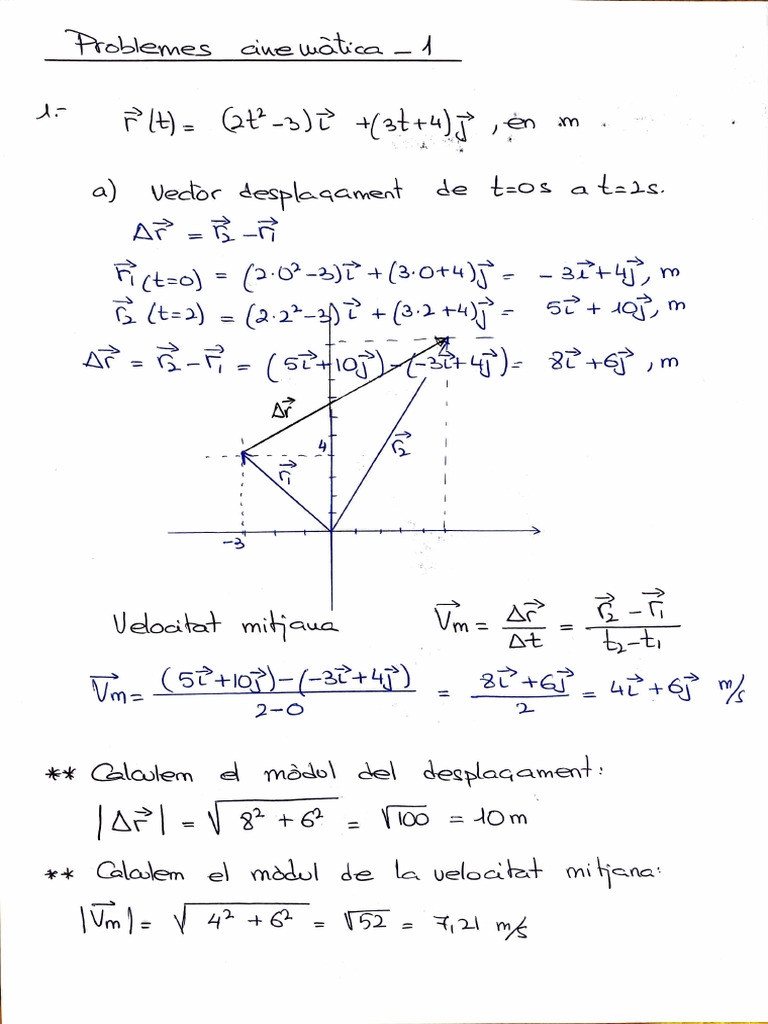 Problemes cinemàtica - 1
1.- r⃗(t) = (2t² - 3)i⃗ + (3t + 4)j⃗, en m
a) Vector desplaçament de t=0s a t=2s.
Δr⃗ = r⃗₂ - r⃗₁
r⃗₁ (t=0) = (2·0² - 3)i⃗ + (3·0 + 4)j⃗ = - 3i⃗ + 4j⃗, m
r⃗₂ (t=2) = (2·2² - 3)i⃗ + (3·2 + 4)j⃗ = 5i⃗ + 10j⃗, m
Δr⃗ = r⃗₂ - r⃗₁ = (5i⃗ + 10j⃗) - (-3i⃗ + 4j⃗) = 8i⃗ + 6j⃗, m
Δr⃗
4
r⃗₂
r⃗₁
-3
Velocitat mitjana V⃗m = Δr⃗/Δt = (r⃗₂ - r⃗₁)/(t₂ - t₁)
V⃗m = ((5i⃗ + 10j⃗) - (-3i⃗ + 4j⃗))/(2-0) = (8i⃗ + 6j⃗)/2 = 4i⃗ + 6j⃗ m/s
** Calculem el mòdul del desplaçament:
|Δr⃗| = √(8² + 6²) = √100 = 10 m
** Calculem el mòdul de la velocitat mitjana:
|V⃗m| = √(4² + 6²) = √52 = 7,21 m/s